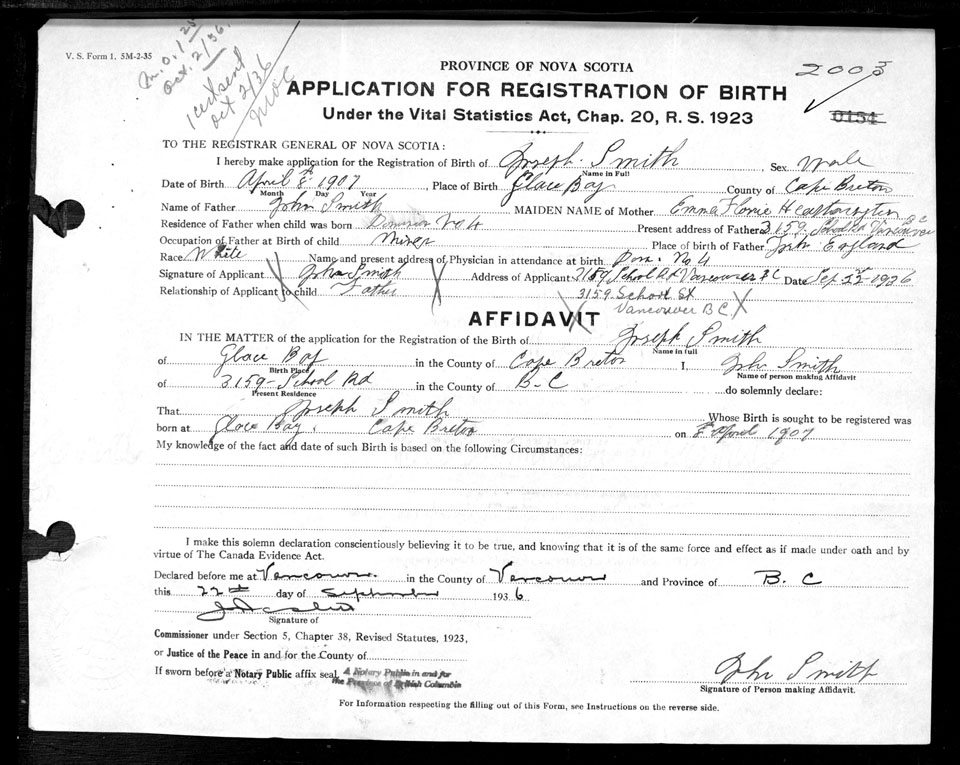 V. S. Form 1, 5M-2-35
M.O. 1.25
Oct. 2/36.
1 cert sent
Oct 2/36
2003
PROVINCE OF NOVA SCOTIA
APPLICATION FOR REGISTRATION OF BIRTH
0154
Under the Vital Statistics Act, Chap. 20, R. S. 1923
TO THE REGISTRAR GENERAL OF NOVA SCOTIA:
I hereby make application for the Registration of Birth of Joseph Smith Sex Male
Name in Full
Date of Birth April 8th 1907, Place of Birth Glace Bay County of Cape Breton
Month Day Year
Name of Father John Smith MAIDEN NAME of Mother Emma Florrie
Residence of Father when child was born Dominion No 4 Present address of Father 3159 School Rd Vancouver BC
Occupation of Father at Birth of child Miner Place of birth of Father York England
Race White Name and present address of Physician in attendance at birth Dom. No 4
Signature of Applicant John Smith Address of Applicant 3159 School Rd Vancouver BC Date Sep 22 1936
Relationship of Applicant to child Father 3159 School St
Vancouver B C.
AFFIDAVIT
IN THE MATTER of the application for the Registration of the Birth of Joseph Smith
Name in full
of Glace Bay in the County of Cape Breton I, John Smith
Birth Place Name of person making Affidavit
of 3159-School Rd in the County of B-C do solemnly declare:
Present Residence
That Joseph Smith Whose Birth is sought to be registered was
born at Glace Bay. Cape Breton on 8 April 1907
My knowledge of the fact and date of such Birth is based on the following Circumstances:
I make this solemn declaration conscientiously believing it to be true, and knowing that it is of the same force and effect as if made under oath and by
virtue of The Canada Evidence Act.
Declared before me at Vancouver. in the County of Vancouver and Province of B. C
this 22nd day of September 1936
Signature of
Commissioner under Section 5, Chapter 38, Revised Statutes, 1923,
or Justice of the Peace in and for the County of
If sworn before a Notary Public affix seal. A Notary Public in and for
the Province of British Columbia
John Smith
Signature of Person making Affidavit.
For Information respecting the filling out of this Form, see Instructions on the reverse side.